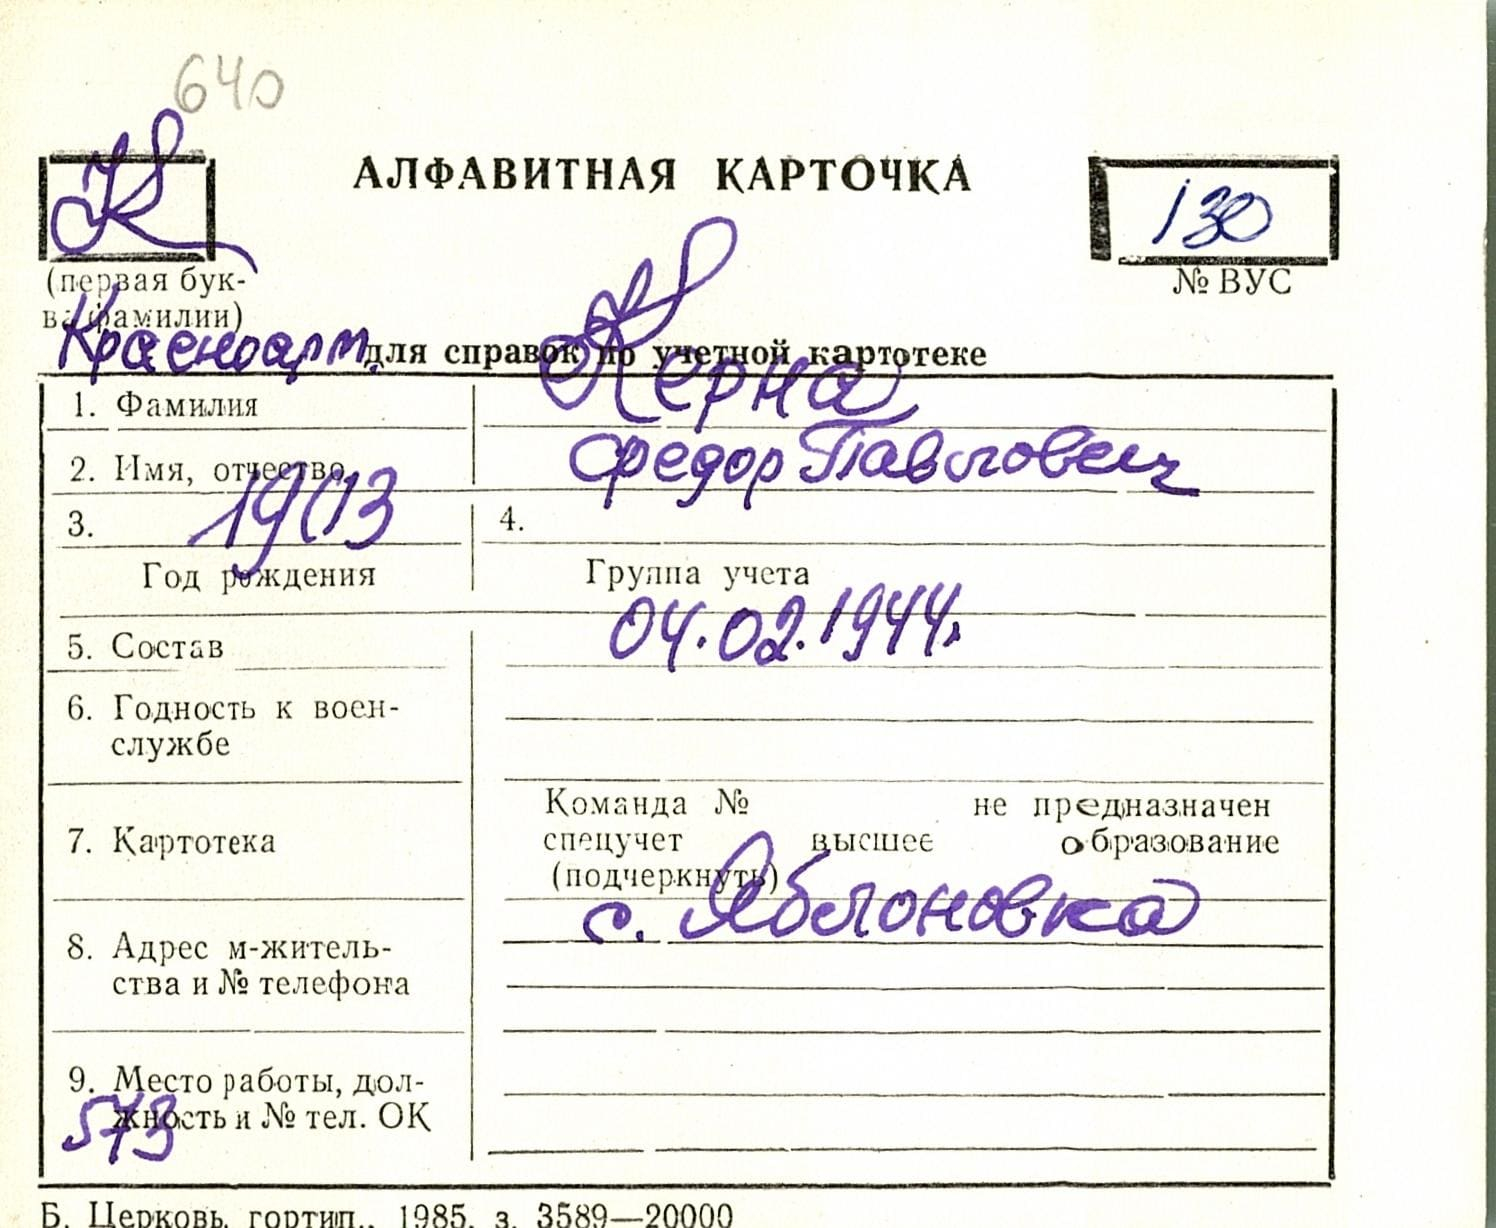 640
К
АЛФАВИТНАЯ КАРТОЧКА
130
(первая бук-
ва фамилии)
№ ВУС
Красноарм.
для справок по учетной картотеке
1. Фамилия
Керна
2. Имя, отчество
Федор Павлович
3. 1903
4.
Год рождения
Группа учета
04.02.1944г.
5. Состав
6. Годность к воен-
службе
7. Картотека
Команда № не предназначен
спецучет высшее образование
(подчеркнуть)
с. Яблоновка
8. Адрес м-житель-
ства и № телефона
9. Место работы, дол-
жность и № тел. ОК
573
Б. Церковь, гортип., 1985, з. 3589—20000